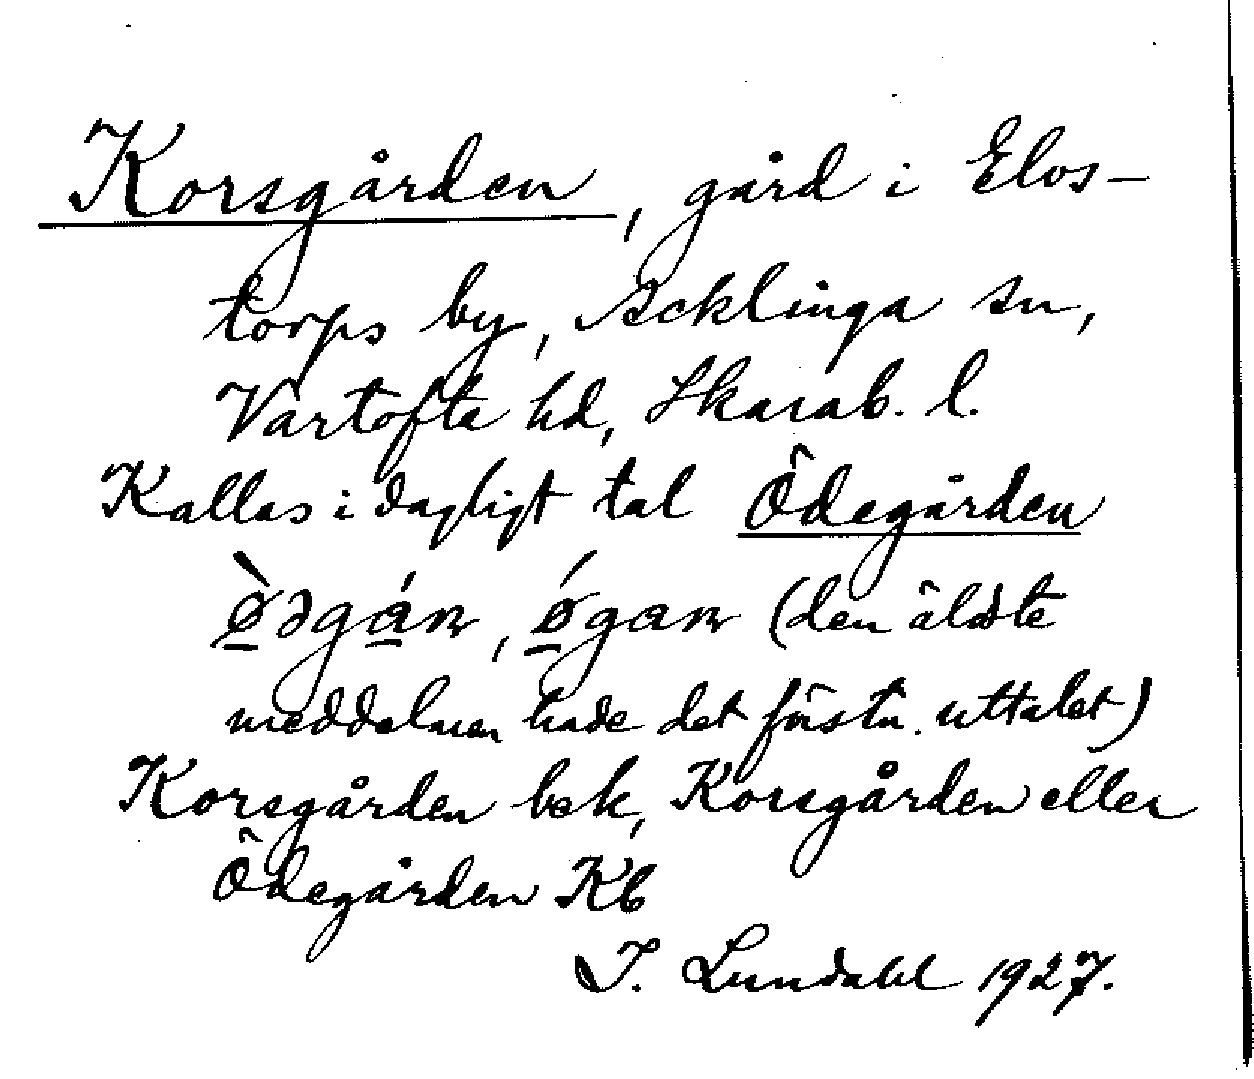 Korsgården, gård i Elos-
torps by, Acklinga sn,
Vartofta hd, Skarab. l.
Kallas i dagligt tal Ödegården
ø̀əgán, ǿgan (den äldste
meddelaren hade det först n. uttalet)
Korsgården bek, Korsgården eller
Ödegården Kb
I. Lundahl 1927.